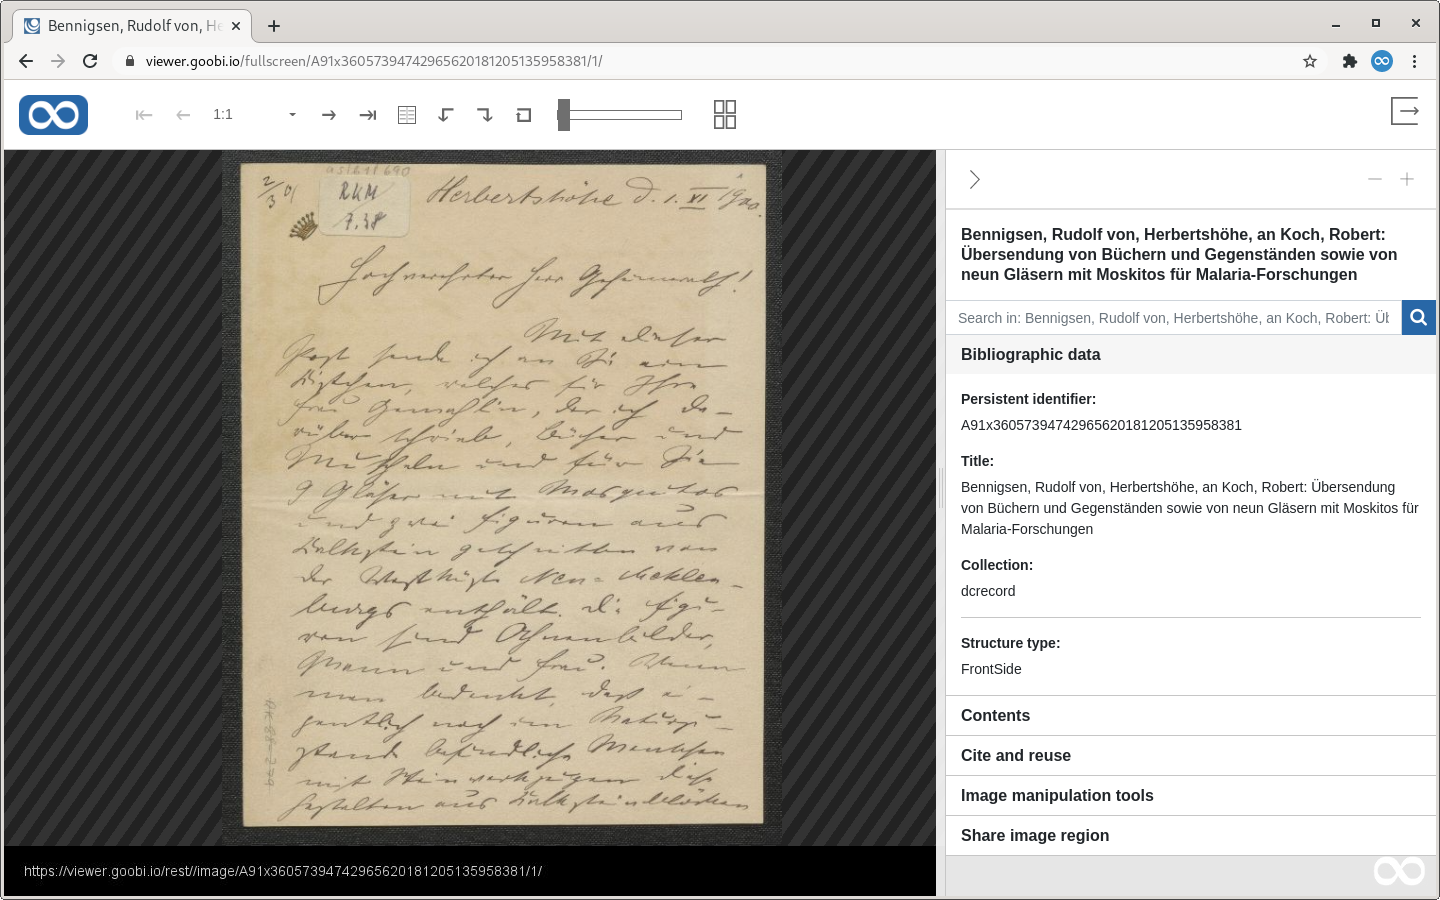 Bennigsen, Rudolf von, He
viewer.goobi.io/fullscreen/A91x36057394742965620181205135958381/1/
1:1
2/3 01
as/61/690
RKM
7.38
Herbertshöhe d. 1. VI 1900.
Hochverehrter Herr Geheimrath!
Mit dieser
Post sende ich an Sie ein
Kistchen, welches für Ihre
Frau Gemahlin, der ich da-
rüber schrieb, Bücher und
Muscheln und für Sie
9 Gläser mit Mosquitos
und zwei Figuren aus
Kalkstein geschnitten von
der Westküste Neu-Mecklen-
burgs enthält. Die Figu-
ren sind Ahnenbilder,
Mann und Frau. Wenn
man bedenkt, daß ei-
gentlich noch im Naturzu-
stande befindliche Menschen
mit Steinwerkzeugen diese
Gestalten aus Kalksteinblöcken
https://viewer.goobi.io/rest//image/A91x36057394742965620181205135958381/1/
Bennigsen, Rudolf von, Herbertshöhe, an Koch, Robert:
Übersendung von Büchern und Gegenständen sowie von
neun Gläsern mit Moskitos für Malaria-Forschungen
Search in: Bennigsen, Rudolf von, Herbertshöhe, an Koch, Robert: Üb
Bibliographic data
Persistent identifier:
A91x36057394742965620181205135958381
Title:
Bennigsen, Rudolf von, Herbertshöhe, an Koch, Robert: Übersendung
von Büchern und Gegenständen sowie von neun Gläsern mit Moskitos für
Malaria-Forschungen
Collection:
dcrecord
Structure type:
FrontSide
Contents
Cite and reuse
Image manipulation tools
Share image region